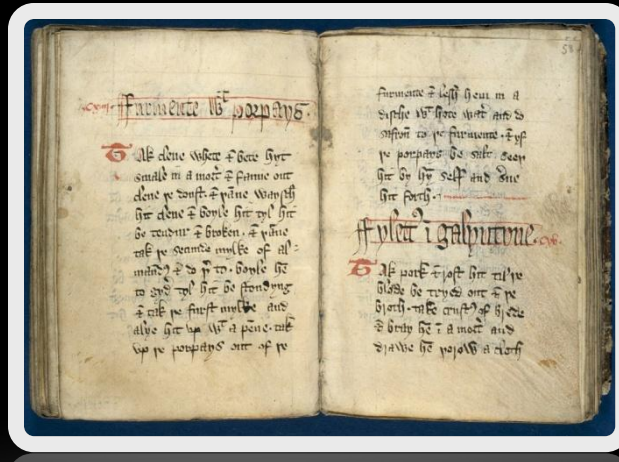 Furmente wt porpays.
Tak clene whete & bete hyt
smale in a mort' & fanne out
clene þe doust. & þane waysch
hit clene & boyle hit tyl hit
be tendur & broken. & þane
tak þe secunde mylke of al=
mandꝫ & do þ' to. boyle hē
to gyd' tyl hit be stondyng
& tak þe furst mylke and
alye hit up wt a pene. tak
up þe porpays out of þe
58
furmente & lesh hem in a
dische wt hote wat' and do
safron to þe furmente. & yf
þe porpays be salt seeþ
hit by hȳ self and s'ue
hit forth.
Fylett' ī galyntyne.
Tak pork & rost hit til þe
blode be tryed out & þe
broth. take crust' of brede
& bray hē ī a mort' and
drawe hē þorow a cloth